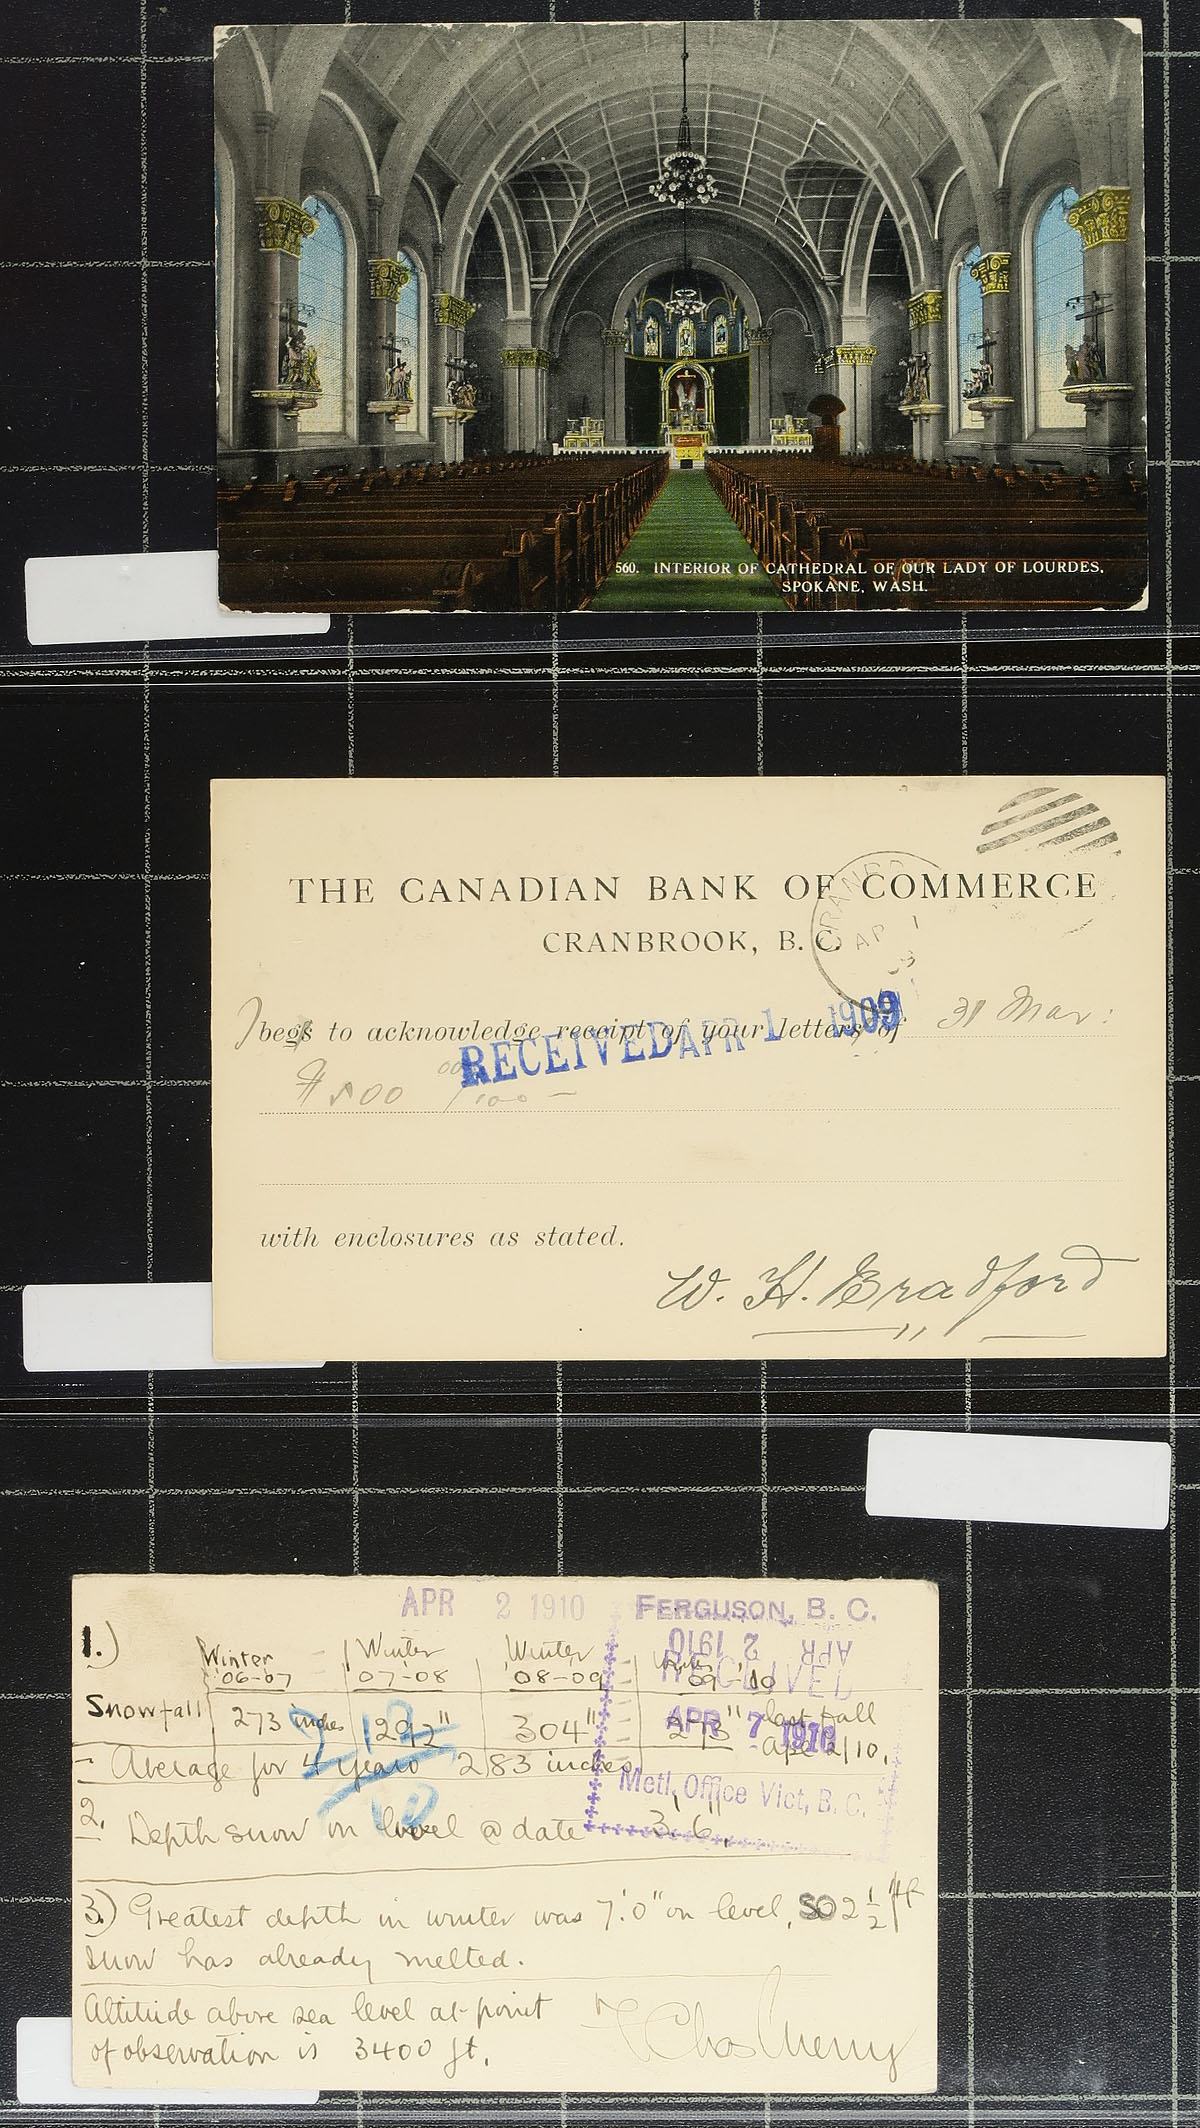 560. INTERIOR OF CATHEDRAL OF OUR LADY OF LOURDES,
SPOKANE, WASH.
THE CANADIAN BANK OF COMMERCE
CRANBROOK, B. C.
AP 1
begs to acknowledge receipt of your letters of 31 Mar:
RECEIVED APR 1 1909
$500 00/100 —
with enclosures as stated.
W. H. Bradford
APR 2 1910 FERGUSON, B. C.
APR 2 1910
RECEIVED
APR 7 1910
Metl. Office Vict, B. C.
1.) Winter Winter Winter
'06-07 '07-08 '08-09 '09-'10
Snowfall 273 inches 292" 304" 273" last fall
Apl 2/10.
- Average for 4 years 283 inches
2. Depth snow on level @ date 3'6".
3.) Greatest depth in winter was 7'0" on level, SO 2 1/2 ft
snow has already melted.
Altitude above sea level at point
of observation is 3400 ft.